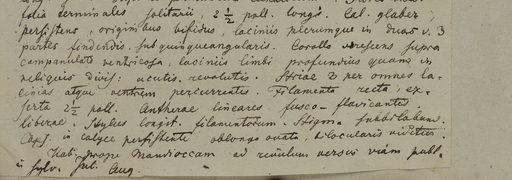 folia terminales solitarii, 2 1/2 poll. longi. Cal. glaber,
persistens, originibus bifidus, laciniis plerumque in duas v. 3
partes findendis, subquinqueangularis. Corolla virescens supra
campanulato ventricosa, laciniis limbi profundius quam in
reliquis divis: acutis. revolutis. Striae 3 per omnes la-
cinias atque ventrem percurrentes. Filamenta recta, ex-
serta 2 1/2 poll. Antherae lineares fusco-flavicantes
liberae. Stylus longit. filamentorum. Stigma subbilabum.
Caps. in calyce persistente oblongo ovata, bilocularis
Hab. prope Mandioccam ad rivulum versus viam publ.
in sylv. Jul. Aug.